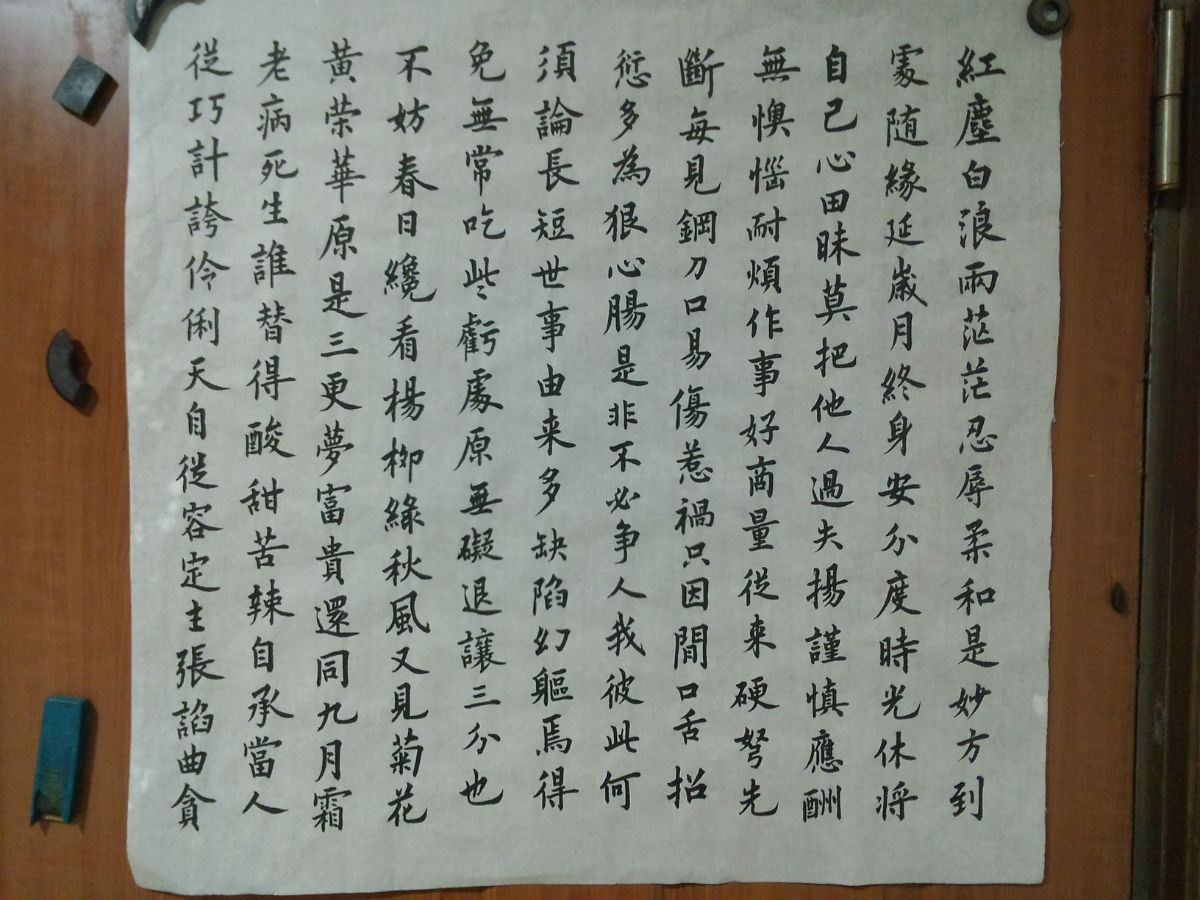 紅塵白浪兩茫茫忍辱柔和是妙方到
處随緣延歲月終身安分度時光休将
自己心田昧莫把他人過失揚謹慎應酬
無懊惱耐煩作事好商量從来硬弩先
斷每見鋼刀口易傷惹禍只因閒口舌招
愆多為狠心腸是非不必争人我彼此何
須論長短世事由来多缺陷幻軀焉得
免無常吃些虧處原無礙退讓三分也
不妨春日纔看楊柳緣秋風又見菊花
黄荣華原是三更夢富貴還同九月霜
老病死生誰替得酸甜苦辣自承當人
從巧計誇伶俐天自從容定主張諂曲貪